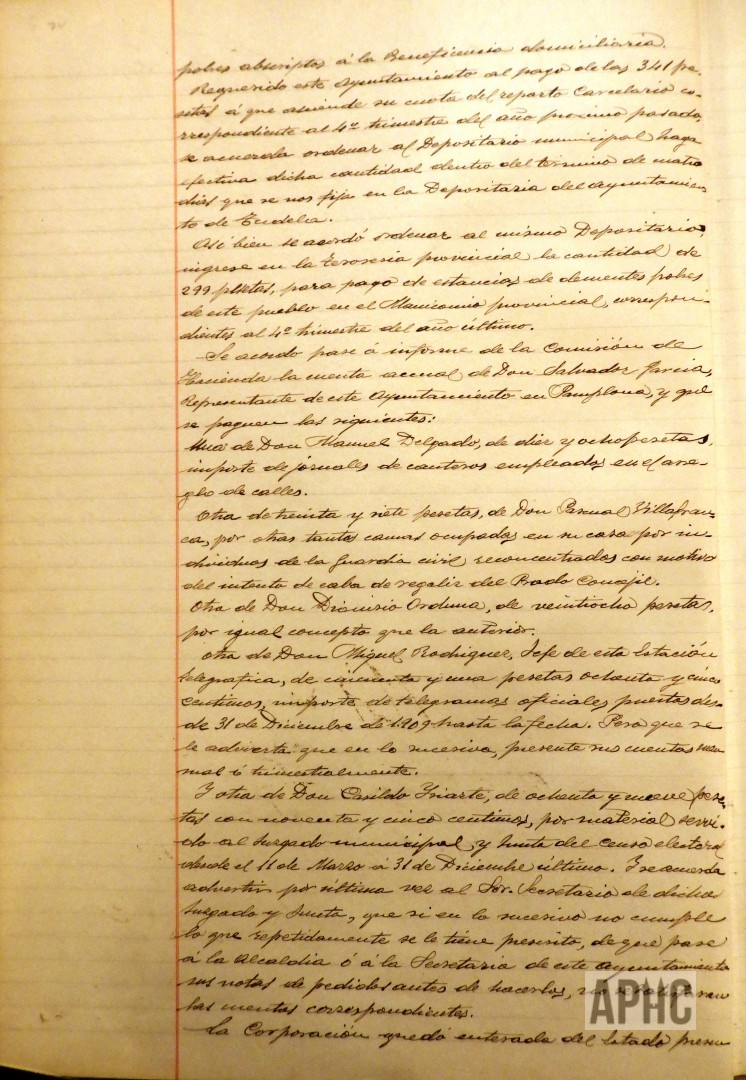 pobres abscriptos á la Beneficencia domiciliaria.
Requerido este Ayuntamiento al pago de las 341 pe-
setas á que asciende su cuota del reparto Carcelario co-
rrespondiente al 4º trimestre del año próximo pasado,
se acuerda ordenar al Depositario municipal haga
efectiva dicha cantidad dentro del término de
dias que se nos fija en la Depositaria del Ayuntamien-
to de Tudela.
Asi bien se acordó ordenar al mismo Depositario,
ingrese en la Tesoreria provincial la cantidad de
299 ptsetas, para pago de estancias de dementes pobres
de este pueblo en el Manicomio provincial, correspon-
dientes al 4º trimestre del año último.
Se acordo pase á informe de la Comisión de
Hacienda la cuenta de Don Salvador Garcia,
Representante de este Ayuntamiento en Pamplona, y que
se paguen las siguientes:
Una de Don Manuel Delgado, de diez y ocho pesetas,
importe de jornales de canteros empleados en el arre-
glo de calles.
Otra de treinta y siete pesetas, de Don Pascual Villafran-
ca, por otras tantas camas ocupadas en su casa por in-
dividuos de la Guardia civil reconcentrados con motivo
del intento de caba de regaliz del Prado Concejil.
Otra de Don Dionisio Orduna, de veintiocho pesetas,
por igual concepto que la anterior.
Otra de Don Miguel Rodriguez, Jefe de esta Estación
telegrafica, de cincuenta y una pesetas ochenta y cinco
centimos, importe de telegramas oficiales puestos des-
de 31 de Diciembre de 1909 hasta la fecha. Pero que se
le advierta que en lo sucesivo, presente sus cuentas men-
sual ó trimestralmente.
Y otra de Don Casildo Yriarte, de ochenta y nueve pese-
tas con noventa y cinco centimos, por material servi-
do al Juzgado municipal y Junta del censo electoral
desde el 11 de Marzo á 31 de Diciembre último. Y se acuerda
advertir por última vez al Sor. Secretario de dicho
Juzgado y Junta, que si en lo sucesivo no cumple
lo que repetidamente se le tiene de que pase
á la Alcaldia ó á la Secretaria de este Ayuntamiento
sus notas de pedidos antes de hacerlos, no se
las cuentas correspondientes.
La Corporación quedó enterada del Estado presen
APHC